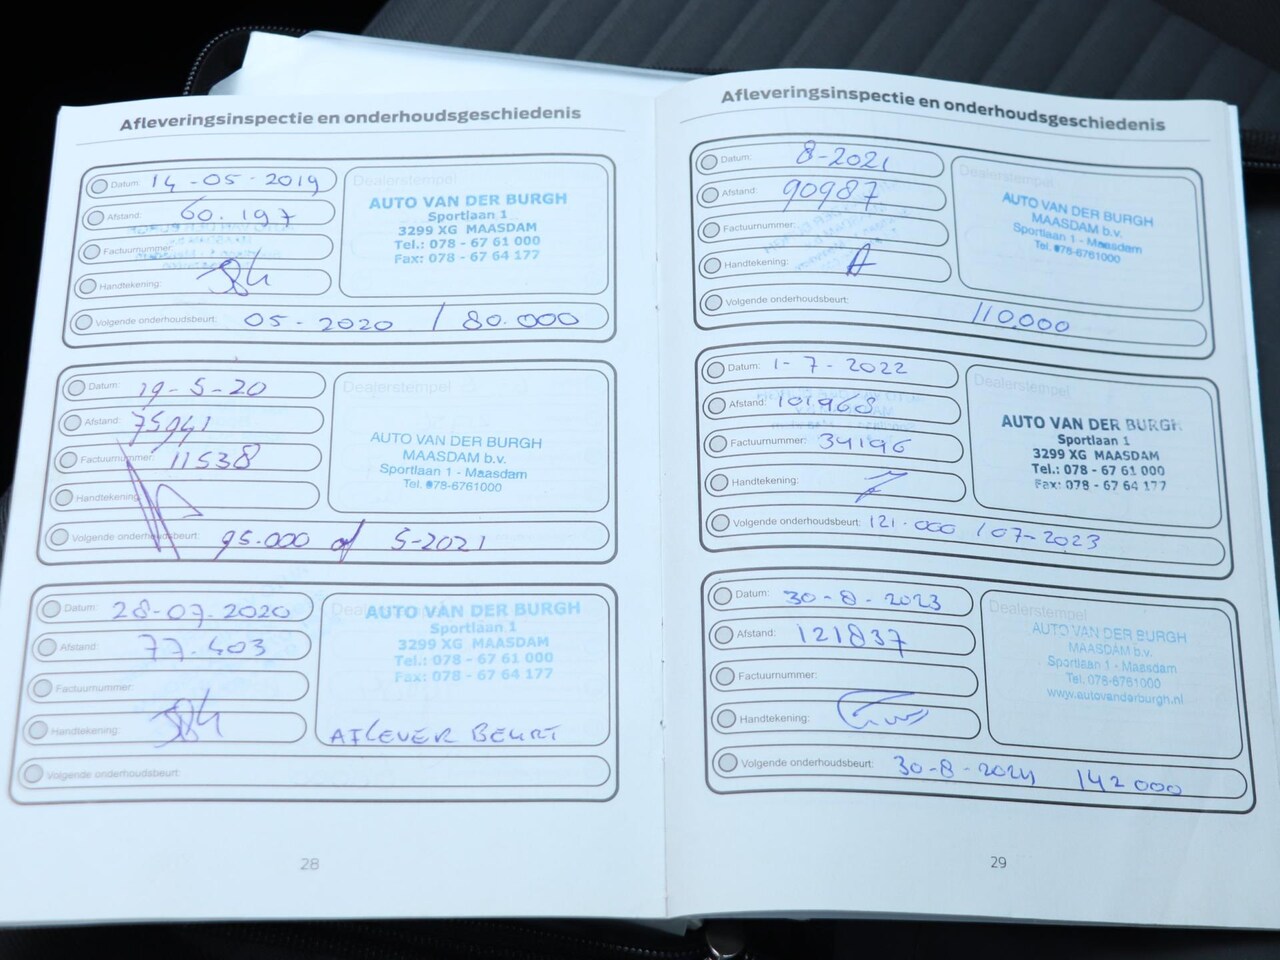 Afleveringsinspectie en onderhoudsgeschiedenis
Datum: 14-05-2019
Afstand: 60.197
Factuurnummer:
Handtekening:
Dealerstempel
AUTO VAN DER BURGH
Sportlaan 1
3299 XG MAASDAM
Tel.: 078 - 67 61 000
Fax: 078 - 67 64 177
Volgende onderhoudsbeurt: 05-2020 / 80.000
Datum: 19-5-20
Afstand: 75941
Factuurnummer: 11538
Handtekening:
Dealerstempel
AUTO VAN DER BURGH
MAASDAM b.v.
Sportlaan 1 - Maasdam
Tel. 078-6761000
Volgende onderhoudsbeurt: 95.000 of 5-2021
Datum: 28-07-2020
Afstand: 77.403
Factuurnummer:
Handtekening:
AUTO VAN DER BURGH
Sportlaan 1
3299 XG MAASDAM
Tel.: 078 - 67 61 000
Fax: 078 - 67 64 177
AFLEVER BEURT
Volgende onderhoudsbeurt:
28
Afleveringsinspectie en onderhoudsgeschiedenis
Datum: 8-2021
Afstand: 90987
Factuurnummer:
Handtekening:
Dealerstempel
AUTO VAN DER BURGH
MAASDAM b.v.
Sportlaan 1 - Maasdam
Tel. 078-6761000
Volgende onderhoudsbeurt: 110.000
Datum: 1-7-2022
Afstand: 101968
Factuurnummer: 34196
Handtekening:
Dealerstempel
AUTO VAN DER BURGH
Sportlaan 1
3299 XG MAASDAM
Tel.: 078 - 67 61 000
Fax: 078 - 67 64 177
Volgende onderhoudsbeurt: 121.000 / 07-2023
Datum: 30-8-2023
Afstand: 121837
Factuurnummer:
Handtekening:
Dealerstempel
AUTO VAN DER BURGH
MAASDAM b.v.
Sportlaan 1 - Maasdam
Tel. 078-6761000
www.autovanderburgh.nl
Volgende onderhoudsbeurt: 30-8-2024 142000
29